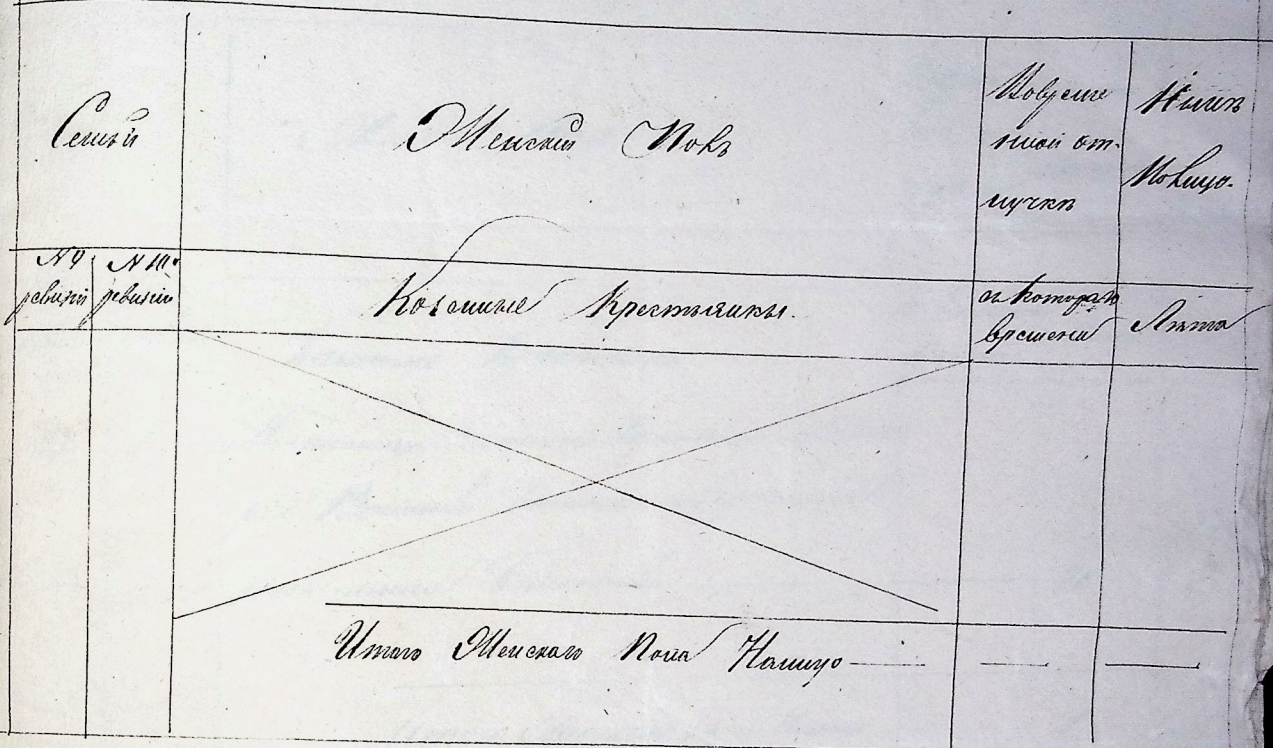 Семьи
Женскiй Полъ
Во време
нной от-
лучкѣ
Нынѣ
Налицо.
№ 9 ревизiи
№ 10 ревизiи
Казенные Крестьянки.
съ котораго
времени
Лѣта
Итого Женскаго Пола Налицо — — —